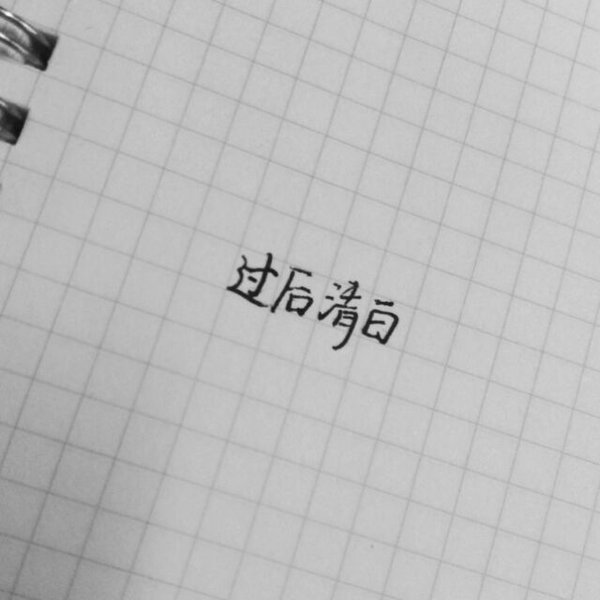 过后清白